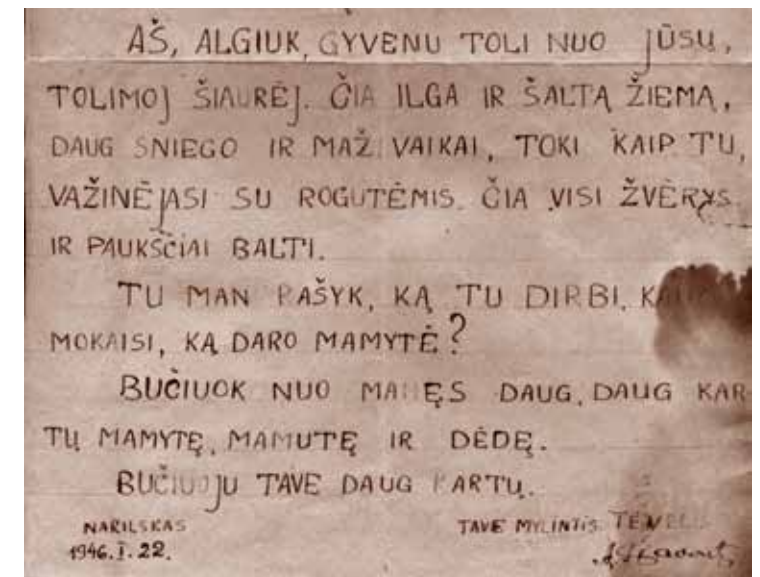 AŠ, ALGIUK, GYVENU TOLI NUO JŪSŲ,
TOLIMOJ ŠIAURĖJ. ČIA ILGA IR ŠALTĄ ŽIEMĄ,
DAUG SNIEGO IR MAŽI VAIKAI, TOKI KAIP TU,
VAŽINĖJASI SU ROGUTĖMIS. ČIA VISI ŽVĖRYS
IR PAUKŠČIAI BALTI.
TU MAN RAŠYK, KĄ TU DIRBI,
MOKAISI, KĄ DARO MAMYTĖ?
BUČIUOK NUO MANĘS DAUG, DAUG KAR
TŲ MAMYTĘ, MAMUTĘ IR DĖDĘ.
BUČIUOJU TAVE DAUG KARTŲ.
NARILSKAS
TAVE MYLINTIS TĖVELIS
1946.I.22.